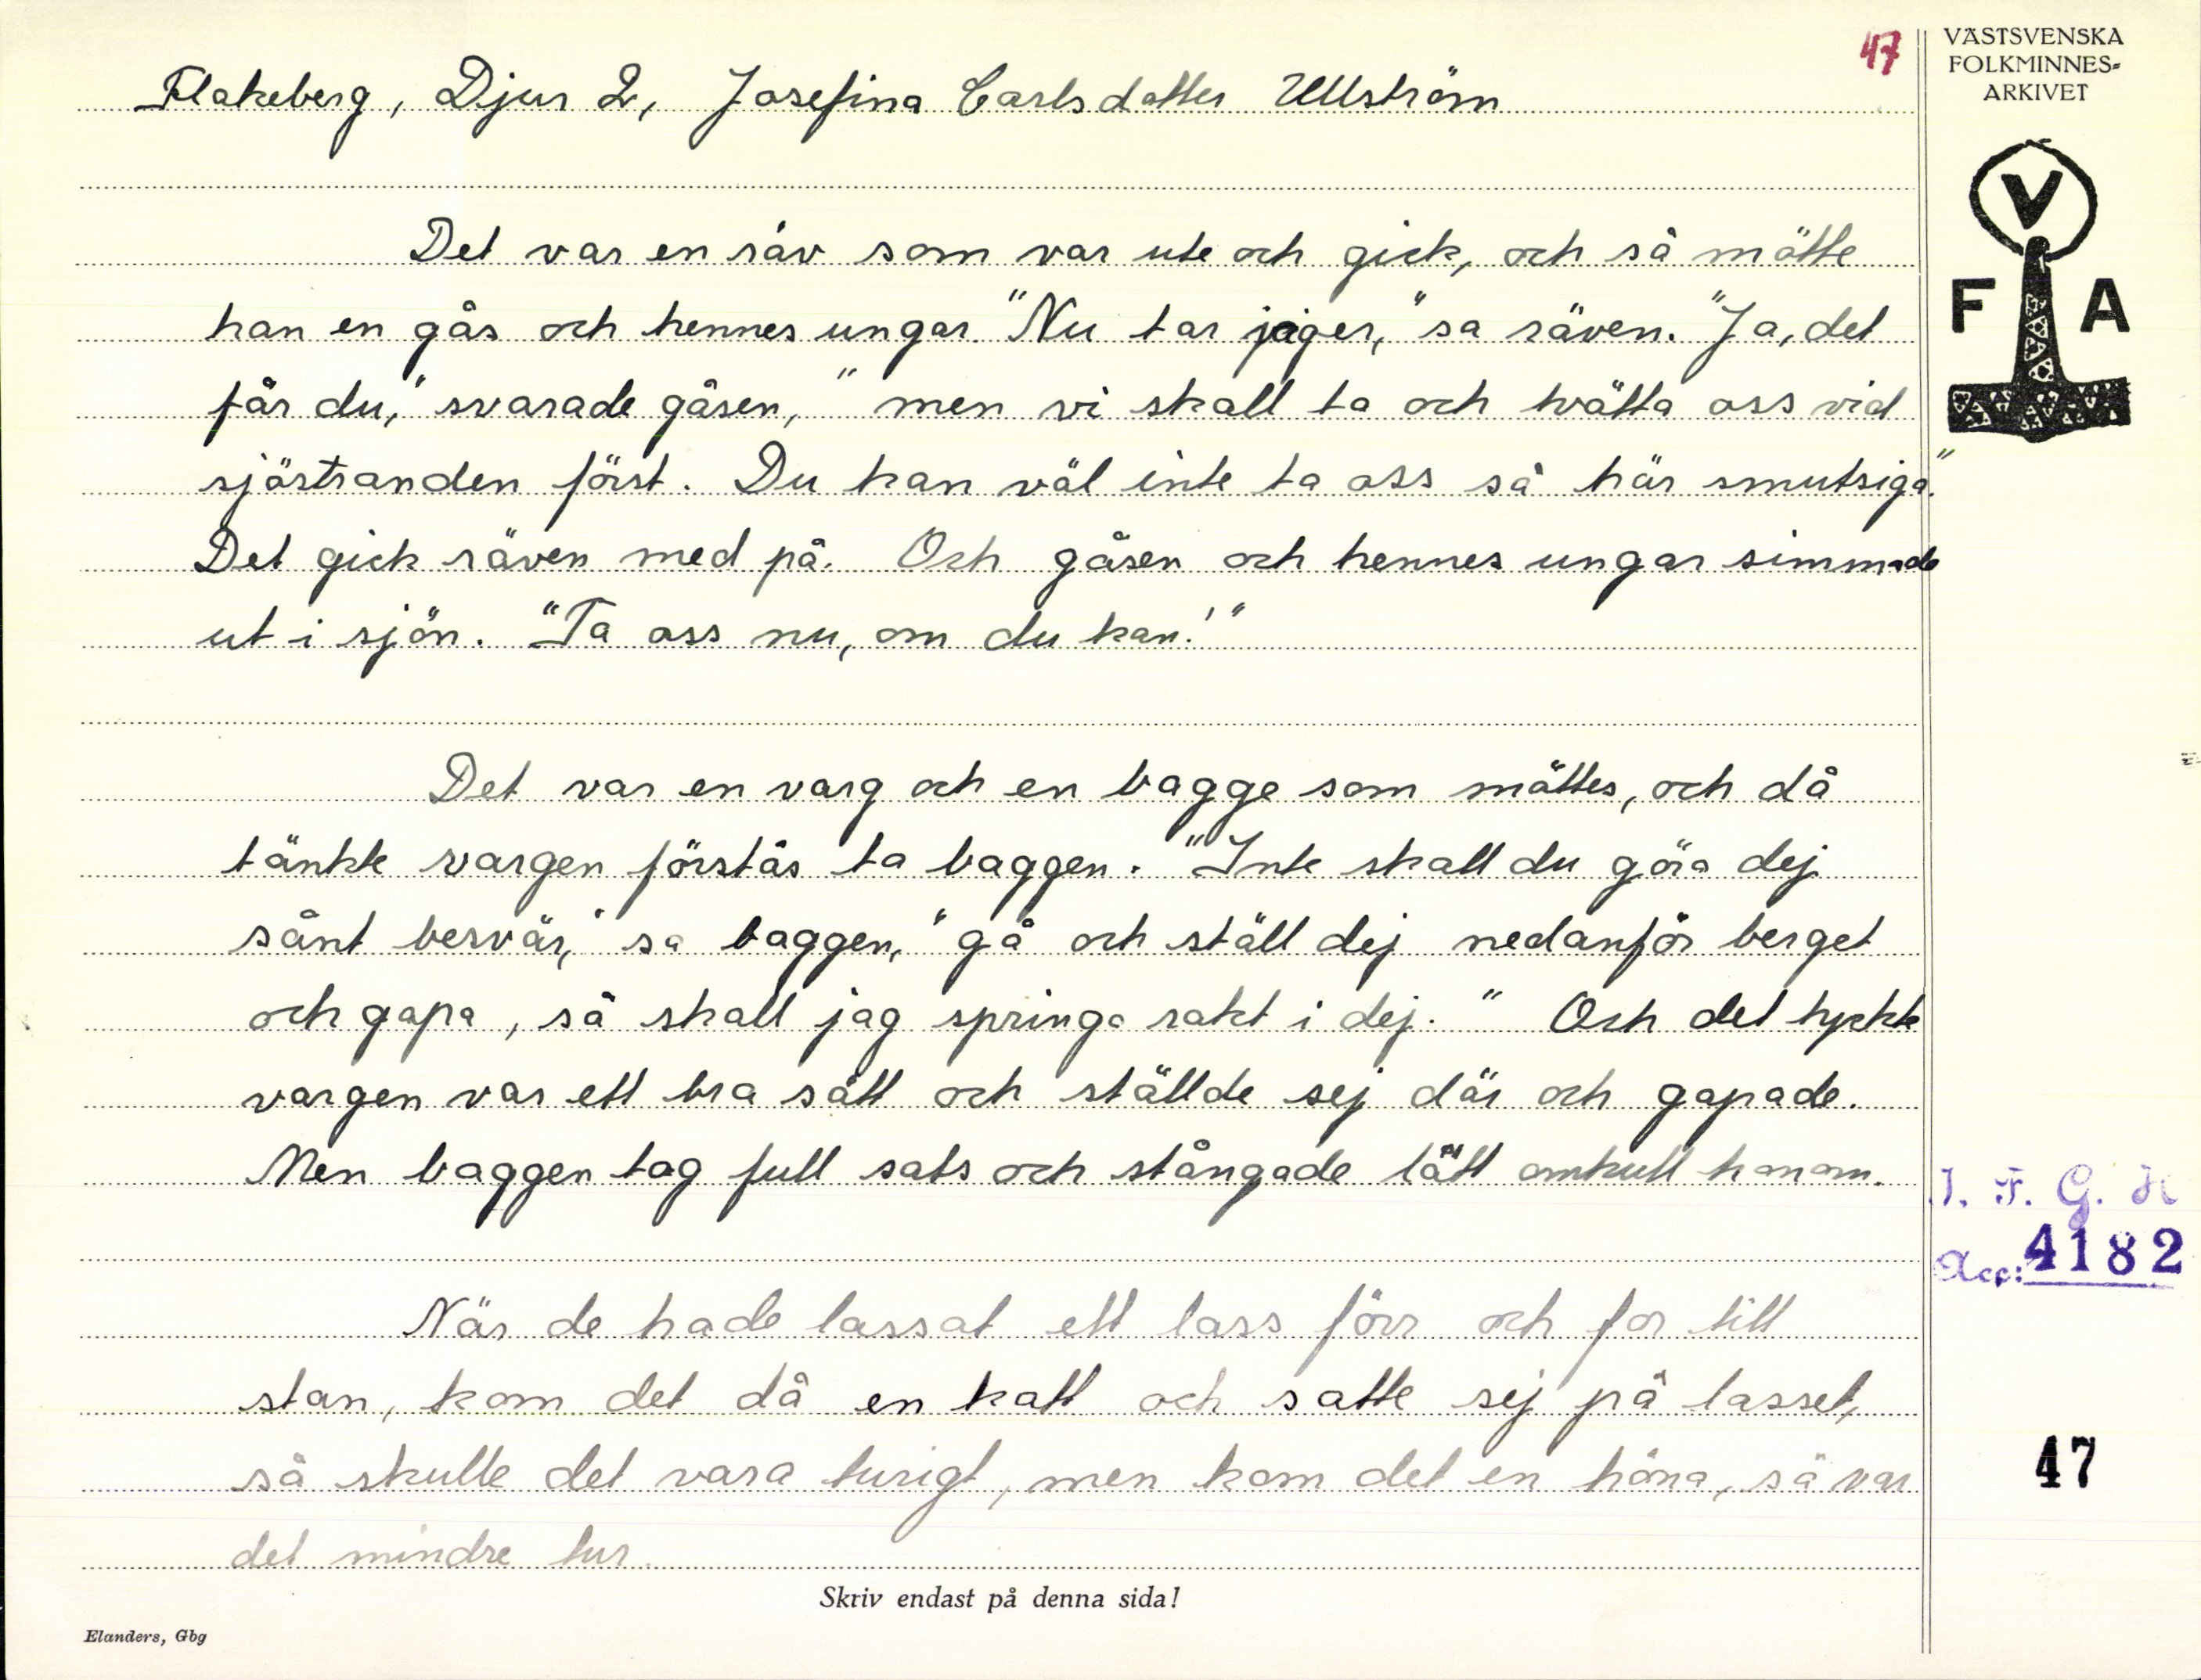 47
VÄSTSVENSKA
FOLKMINNES-
ARKIVET
V
F A
Flakeberg, Djur 2, Josefina Carlsdotter Ullström
Det var en räv som var ute och gick, och så mötte
han en gås och hennes ungar. "Nu tar jag er," sa räven. "Ja, det
får du," svarade gåsen, "men vi skall ta och tvätta oss vid
sjöstranden först. Du kan väl inte ta oss så här smutsiga."
Det gick räven med på. Och gåsen och hennes ungar simmade
ut i sjön. "Ta oss nu, om du kan!"
Det var en varg och en bagge som möttes, och då
tänkte vargen förstås ta baggen. "Inte skall du göra dej
sånt besvär," sa baggen, "gå och ställ dej nedanför berget
och gapa, så skall jag springa rakt i dej." Och det tyckte
vargen var ett bra sätt och ställde sej där och gapade.
Men baggen tog full sats och stångade lätt omkull honom.
När de hade lassat ett lass förr och for till
stan, kom det då en katt och satte sej på lasset,
så skulle det vara turigt, men kom det en höna, så var
det mindre tur.
I. F. G. H
Acc: 4182
47
Skriv endast på denna sida!
Elanders, Gbg